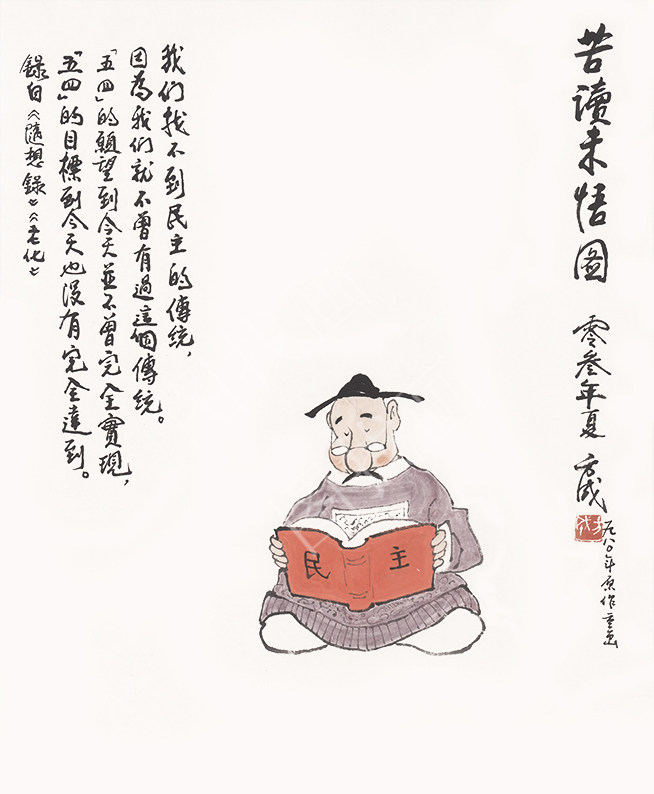 苦讀未悟圖
零叁年夏 方成
方成
一九八〇年原作重画
民主
我们找不到民主的傳統，
因為我们就不曾有過這個傳統。
「五四」的願望到今天並不曾完全實現，
「五四」的目標到今天也没有完全達到。
錄自《隨想錄》《老化》